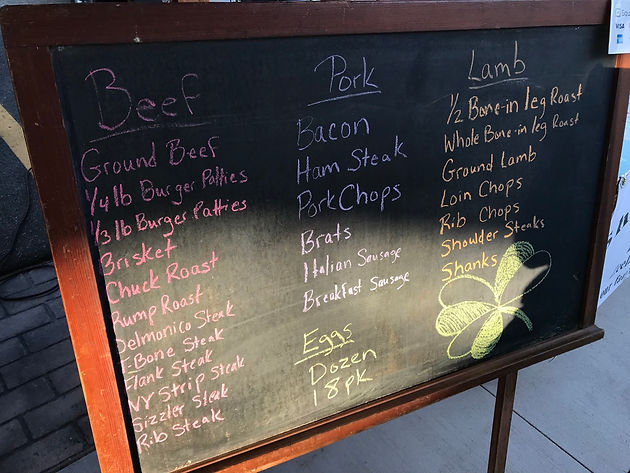 Beef
Ground Beef
1/4 lb Burger Patties
1/3 lb Burger Patties
Brisket
Chuck Roast
Rump Roast
Delmonico Steak
T-Bone Steak
Flank Steak
NY Strip Steak
Sizzler Steak
Rib Steak
Pork
Bacon
Ham Steak
Pork Chops
Brats
Italian Sausage
Breakfast Sausage
Eggs
Dozen
18pk
Lamb
1/2 Bone-in leg Roast
Whole Bone-in leg Roast
Ground Lamb
Loin Chops
Rib Chops
Shoulder Steaks
Shanks
VISA